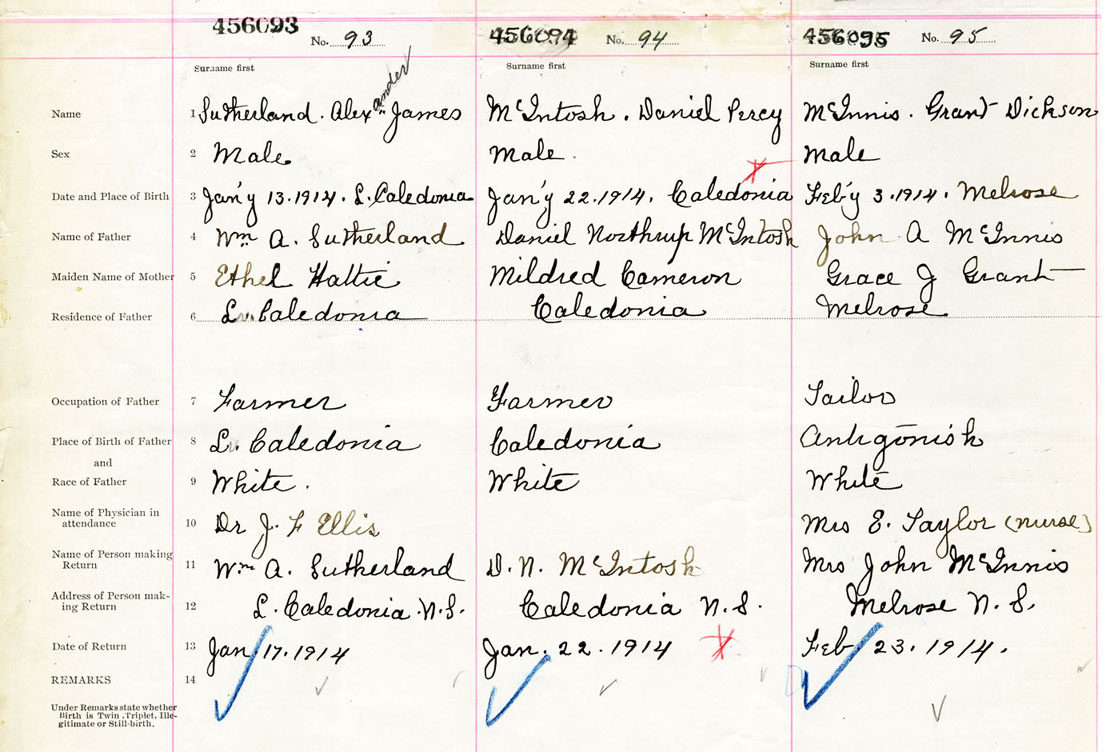 456093 No. 93 456094 No. 94 456095 No. 95
Surname first Surname first Surname first
Name 1 Sutherland. Alexander James McIntosh. Daniel Percy McInnis. Grant Dickson
Sex 2 Male. Male. Male
Date and Place of Birth 3 Jan'y 13.1914. L. Caledonia Jan'y 22.1914. Caledonia Feb'y 3.1914. Melrose
Name of Father 4 Wm A. Sutherland Daniel Northrup McIntosh John A McInnis
Maiden Name of Mother 5 Ethel Hattie Mildred Cameron Grace J Grant
Residence of Father 6 L. Caledonia Caledonia Melrose
Occupation of Father 7 Farmer Farmer Tailor
Place of Birth of Father 8 L. Caledonia Caledonia Antigonish
and
Race of Father 9 White. White White
Name of Physician in
attendance 10 Dr J. F Ellis Mrs E. Taylor (nurse)
Name of Person making
Return 11 Wm A. Sutherland D. N. McIntosh Mrs John McInnis
Address of Person mak-
ing Return 12 L. Caledonia N.S. Caledonia N.S. Melrose N.S.
Date of Return 13 Jan. 17.1914 Jan. 22.1914 Feb 23.1914.
REMARKS 14
Under Remarks state whether
Birth is Twin, Triplet, Ille-
gitimate or Still-birth.